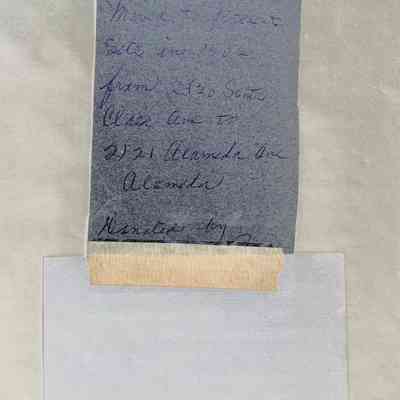 Moved to present
Site in 190-
from 2130 Santa
Clara Ave to
2121 Alameda Ave
Alameda
Donated by